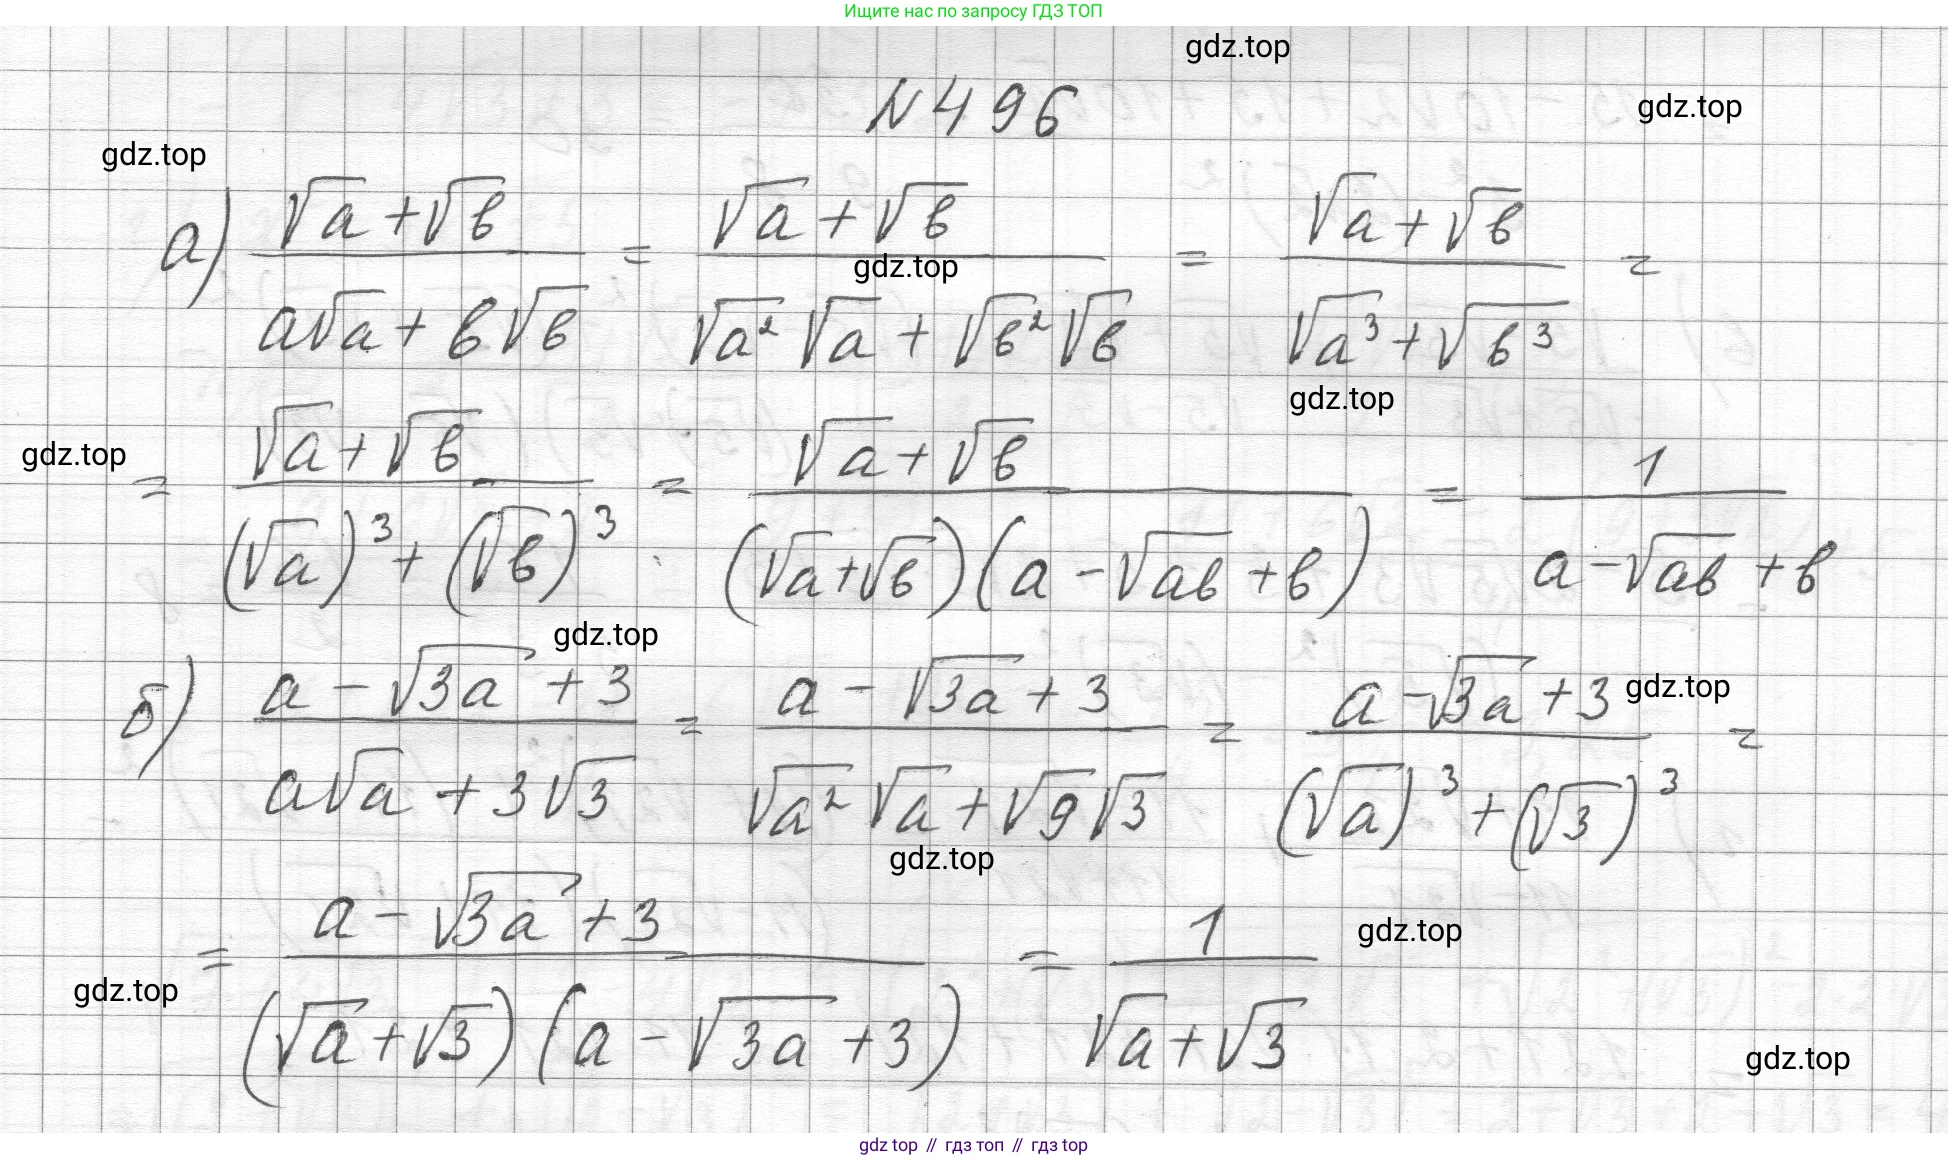 Ищите нас по запросу ГДЗ ТОП
gdz.top
N496
gdz.top
gdz.top
а) (√a + √b)/(a√a + b√b) = (√a + √b)/(√a² √a + √b² √b) = (√a + √b)/(√a³ + √b³) =
gdz.top
gdz.top
gdz.top
= (√a + √b)/((√a)³ + (√b)³) = (√a + √b)/((√a + √b)(a - √ab + b)) = 1/(a - √ab + b)
gdz.top
б) (a - √3a + 3)/(a√a + 3√3) = (a - √3a + 3)/(√a² √a + √9 √3) = (a - √3a + 3)/((√a)³ + (√3)³) =
gdz.top
gdz.top
= (a - √3a + 3)/((√a + √3)(a - √3a + 3)) = 1/(√a + √3)
gdz.top
gdz.top
gdz.top
gdz top // гдз топ // гдз top